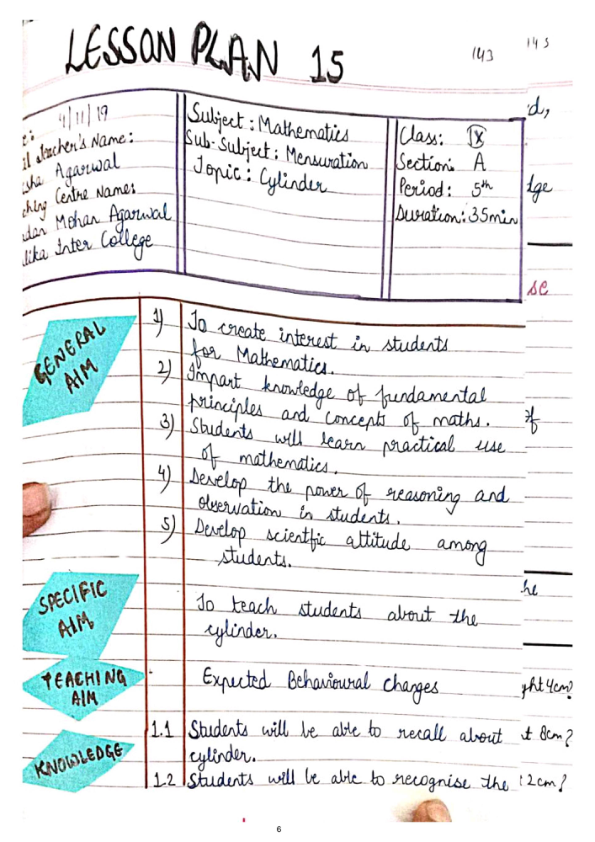 LESSON PLAN 15
143
143
4/11/19
Teacher's Name:
Agarwal
Centre Name:
Mohan Agarwal
Inter College
Subject: Mathematics
Sub-Subject: Mensuration
Topic: Cylinder
Class: IX
Section: A
Period: 5th
Duration: 35min
GENERAL
AIM
1) To create interest in students
for Mathematics.
2) Impart knowledge of fundamental
principles and concepts of maths.
3) Students will learn practical use
of mathematics.
4) Develop the power of reasoning and
observation in students.
5) Develop scientfic attitude among
students.
SPECIFIC
AIM
To teach students about the
cylinder.
TEACHING
AIM
Expected Behavioural Changes
KNOWLEDGE
1.1 Students will be able to recall about
cylinder.
1.2 Students will be able to recognise the
d,
dge
se
of
he
ght 4cm?
t 8cm?
12cm?
6